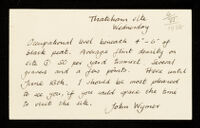 Thatcham site
Wednesday
Occupational level beneath 4"-6" of
black peat. Average flint density on
site @ 50 per yard trowel. Several
gravers and a few points. Here until
June 18th. I should be most pleased
to see you, if you could spare the time
to visit the site.
John Wymer